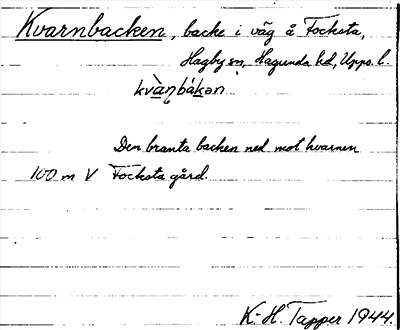 Kvarnbacken, backe i väg å Focksta,
Hagby sn, Hagunda hd, Upps. l.
kvàɳbákən
Den branta backen ned mot kvarnen
100 m V Focksta gård.
K.-H. Tapper 1944.